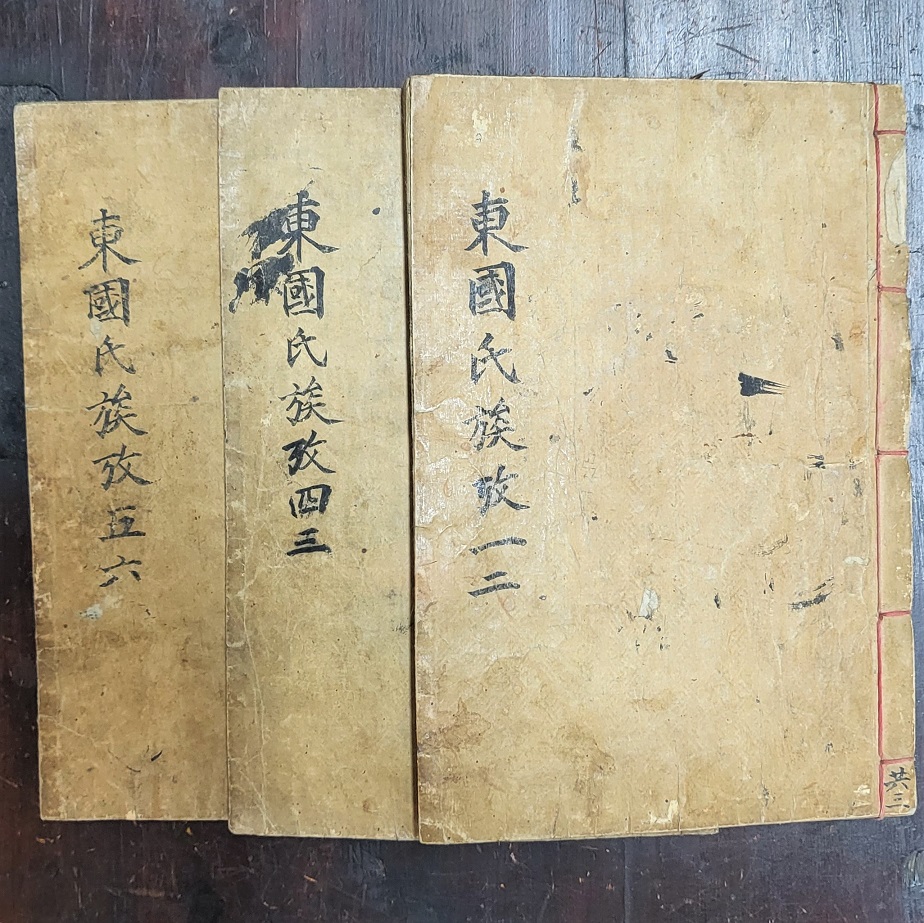 東國氏族攷一二
共三
東國氏族攷四三
東國氏族攷五六